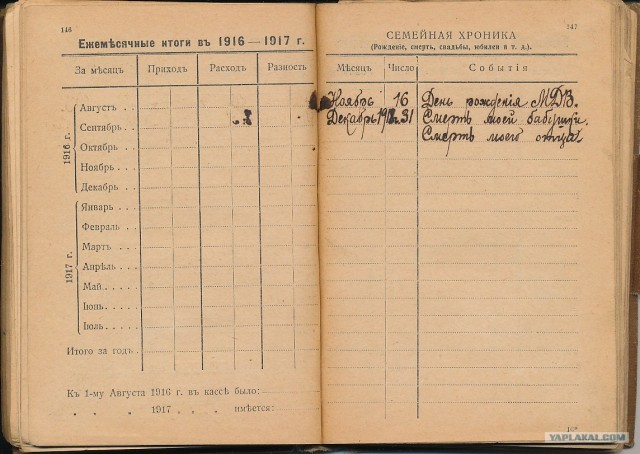 146
Ежемѣсячные итоги въ 1916—1917 г.
За мѣсяцъ Приходъ Расходъ Разность
1916 г.
Августъ . . .
Сентябрь . .
Октябрь . . .
Ноябрь . . .
Декабрь . . .
1917 г.
Январь . . .
Февраль . . .
Мартъ . . .
Апрѣль . . .
Май . . . . .
Іюнь . . . . .
Іюль . . . . .
Итого за годъ.
Къ 1-му Августа 1916 г. въ кассѣ было:
„ „ „ 1917 „ „ „ имѣется:
147
СЕМЕЙНАЯ ХРОНИКА
(Рожденіе, смерть, свадьбы, юбилеи и т. д.).
Мѣсяцъ Число Событія
Ноябрь 16 День рожденія МДВ.
Декабрь 31 Смерть моей бабушки.
Смерть моего отца
YAPLAKAL.COM